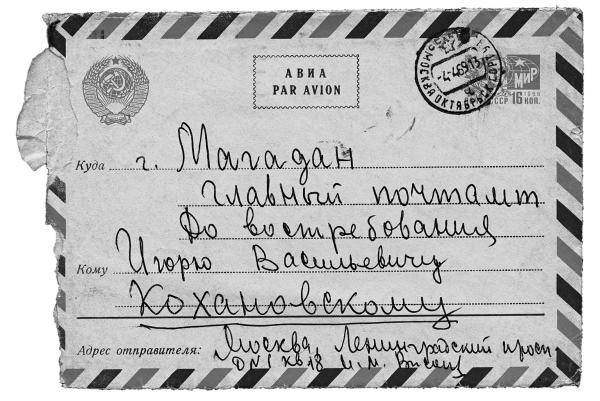 АВИА
PAR AVION
МОСКВА ОКТЯБРЬСК
-4-469-13
МИР
СССР 16 КОП.
1966
Куда г. Магадан
главный почтамт
До востребования
Кому Игорю Васильевичу
Кохановскому
Адрес отправителя: Москва, Ленинградский просп
кв 18